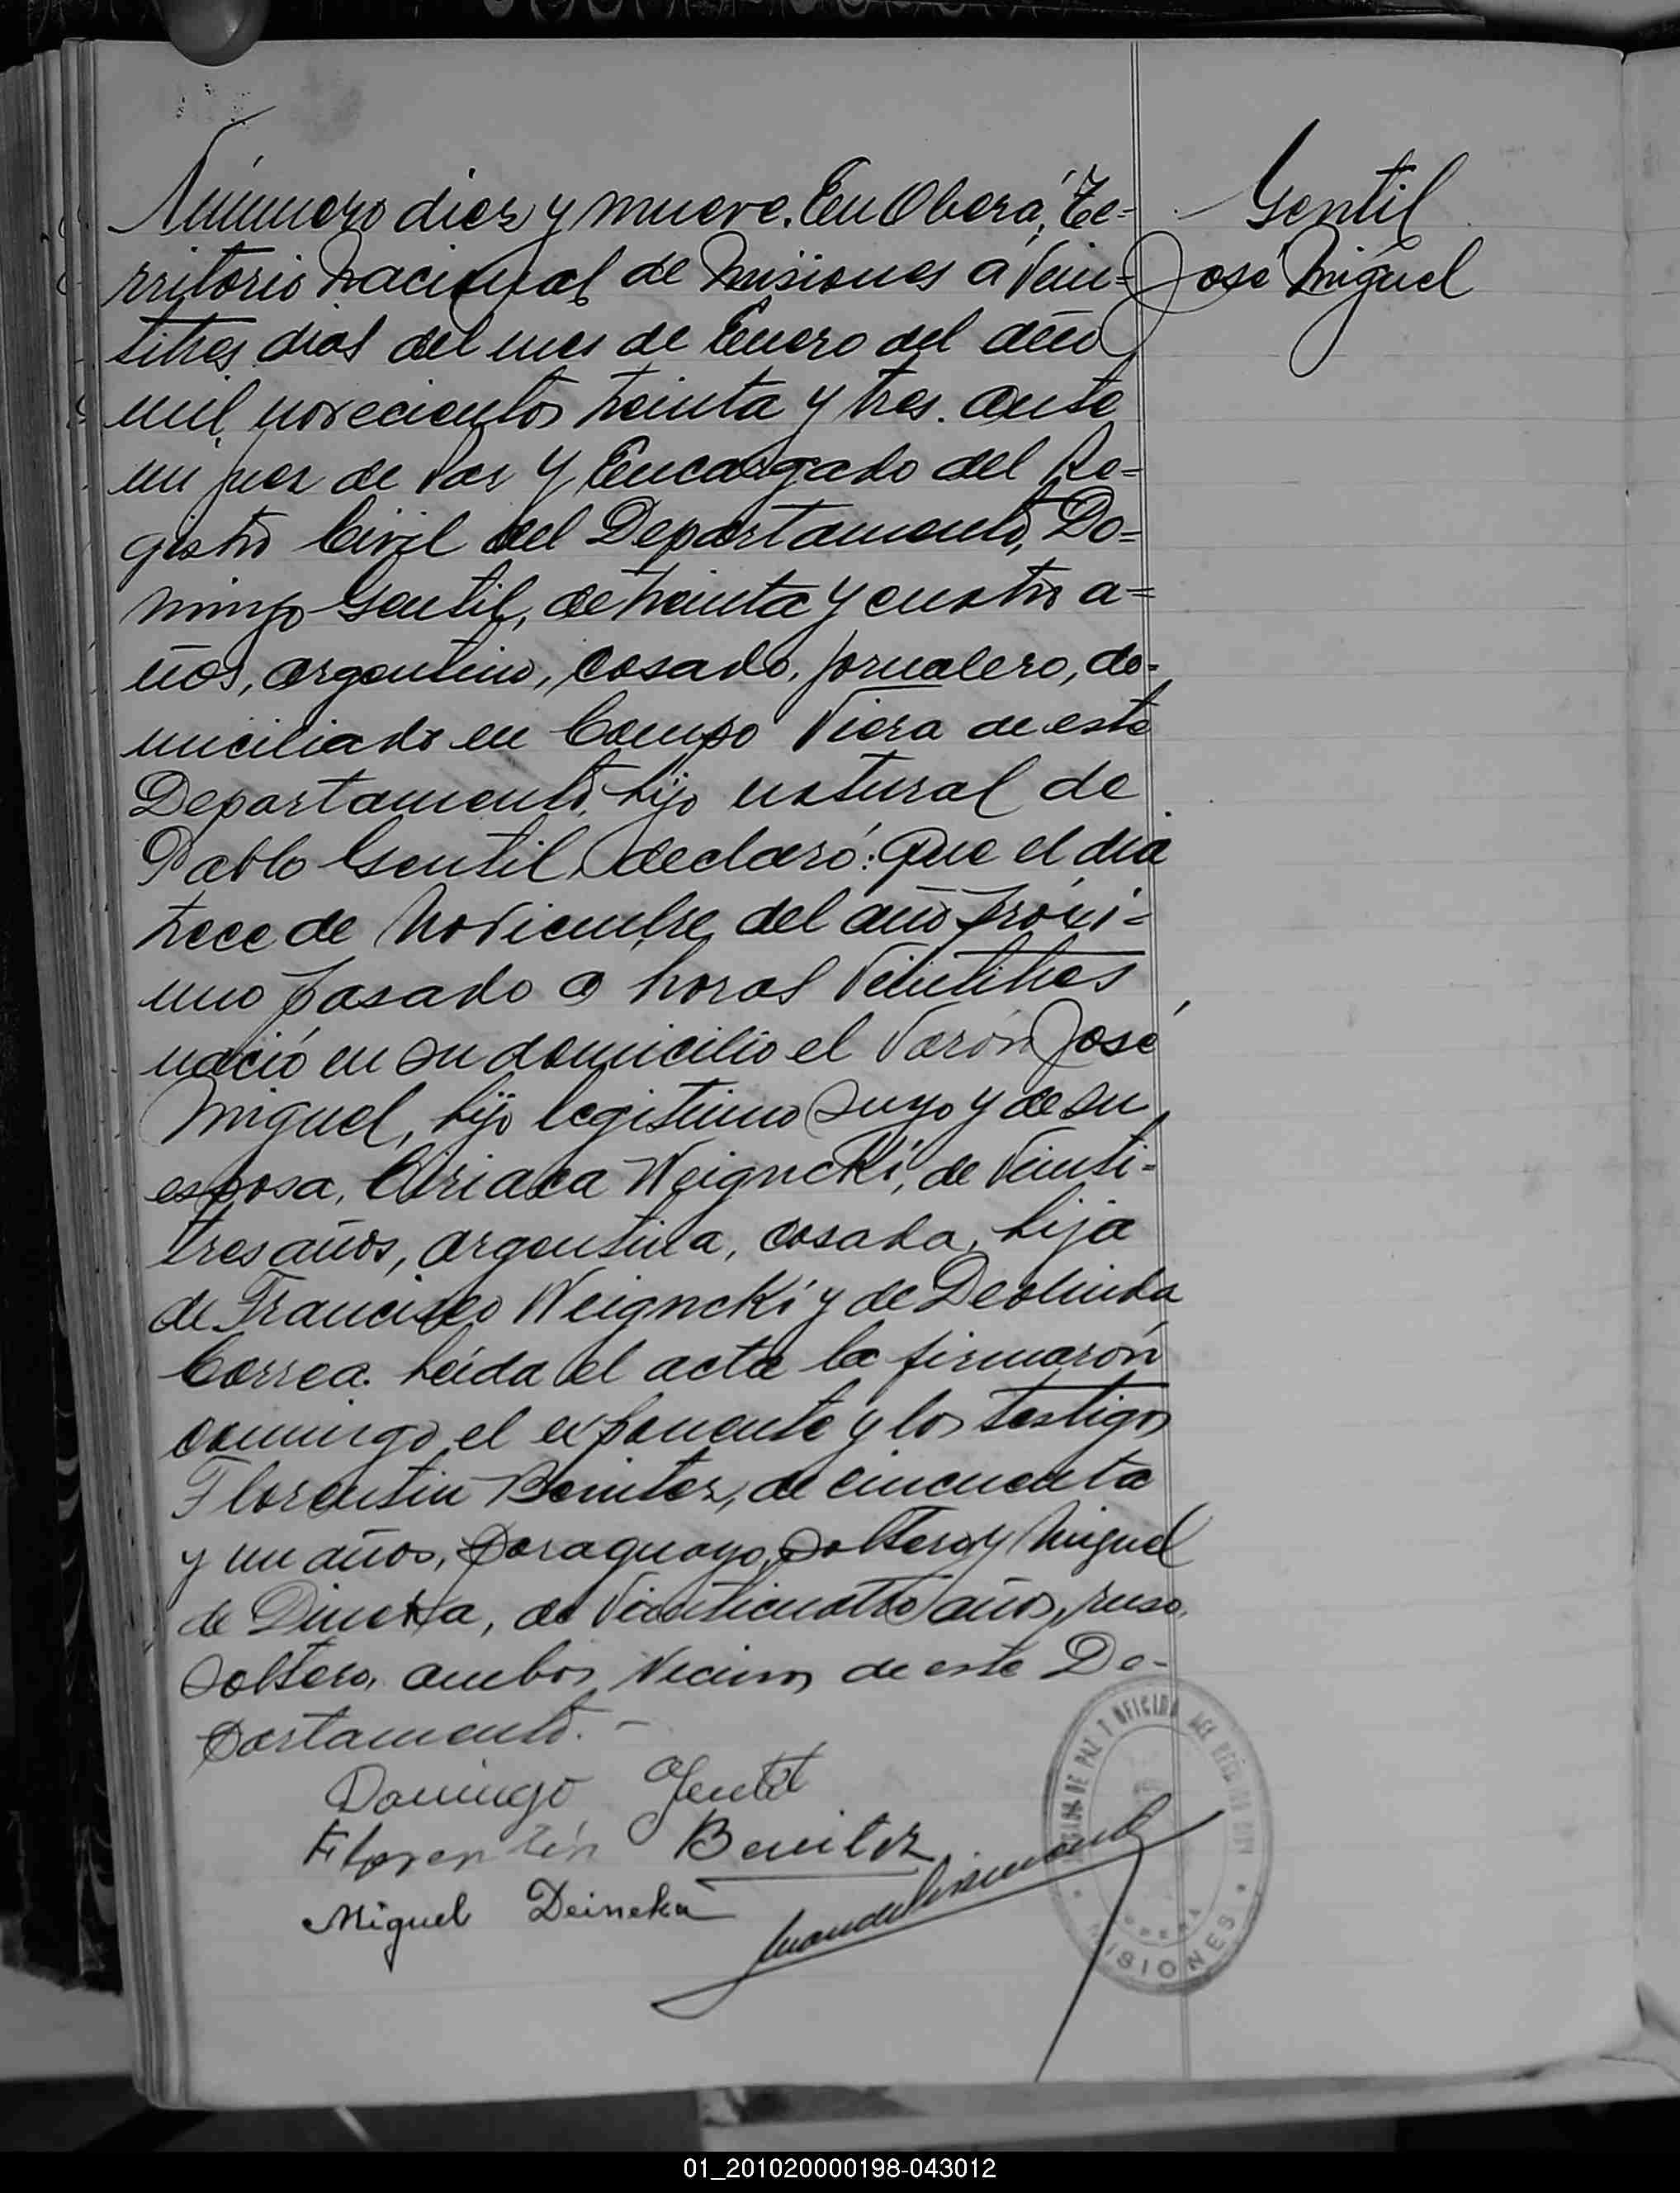 Gentil
José Miguel
Número diez y nueve. En Oberá, Te=
rritorio Nacional de Misiones a vein=
titres dias del mes de Enero del año
mil novecientos treinta y tres. ante
mi juez de Paz y Encargado del Re=
gistro Civil del Departamento, Do=
mingo Gentil, de treinta y cuatro a=
ños, argentino, casado, jornalero, do=
miciliado en Campo Viera de este
Departamento, hijo natural de
Pablo Gentil, declaró: Que el dia
trece de Noviembre del año próxi=
mo pasado a horas veintitres
nació en su domicilio el varón José
Miguel, hijo legitimo suyo y de su
esposa, Ciriaca Weigncki, de veinti=
tres años, argentina, casada, hija
de Francisco Weigncki y de Deolinda
Correa. Leida el acta la firmarón
conmigo el exponente y los testigos
Florentin Benitez, de cincuenta
y un años, paraguayo, soltero y Miguel
de Dineka, de veinticuatro años, ruso,
soltero, ambos vecinos de este De=
partamento. —
Domingo Gentil
Florentín Benitez
Miguel Deineka
DE PAZ Y OFICINA DEL REGISTRO CIVIL
MISIONES
01_201020000198-043012